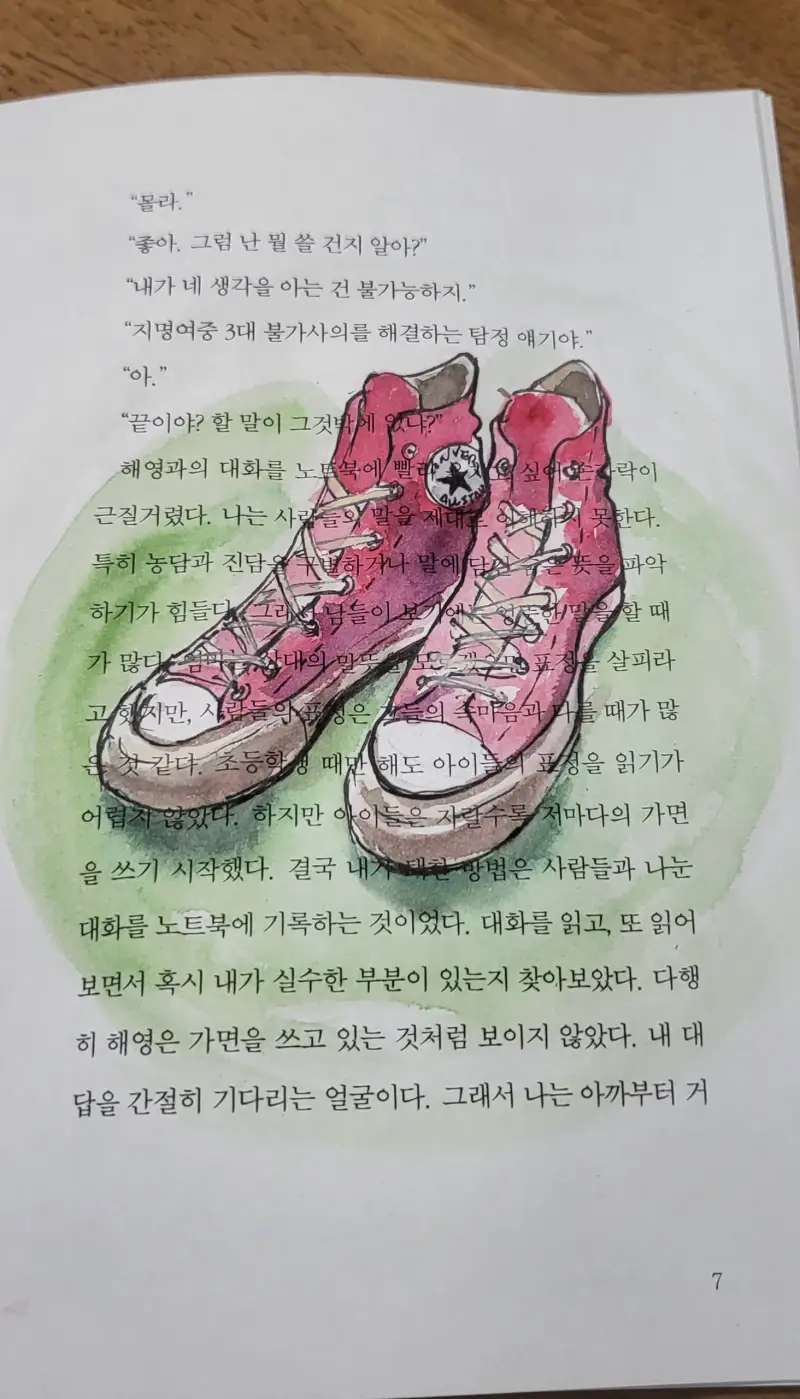 “몰라.”
“좋아. 그럼 난 뭘 쓸 건지 알아?”
“내가 네 생각을 아는 건 불가능하지.”
“지명여중 3대 불가사의를 해결하는 탐정 얘기야.”
“아.”
“끝이야? 할 말이 그것밖에 없냐?”
해영과의 대화를 노트북에 빨리 싶어 손가락이
근질거렸다. 나는 사람들의 말을 제대로 이해하지 못한다.
특히 농담과 진담을 구별하거나 말에 담긴 숨은 뜻을 파악
하기가 힘들다. 그래서 남들이 보기에는 엉뚱한 말을 할 때
가 많다. 엄마는 상대의 말뜻을 모르겠으면 표정을 살피라
고 했지만, 사람들의 표정은 그들의 속마음과 다를 때가 많
은 것 같다. 초등학생 때만 해도 아이들의 표정을 읽기가
어렵지 않았다. 하지만 아이들은 자랄수록 저마다의 가면
을 쓰기 시작했다. 결국 내가 택한 방법은 사람들과 나눈
대화를 노트북에 기록하는 것이었다. 대화를 읽고, 또 읽어
보면서 혹시 내가 실수한 부분이 있는지 찾아보았다. 다행
히 해영은 가면을 쓰고 있는 것처럼 보이지 않았다. 내 대
답을 간절히 기다리는 얼굴이다. 그래서 나는 아까부터 거
ALL STAR
7